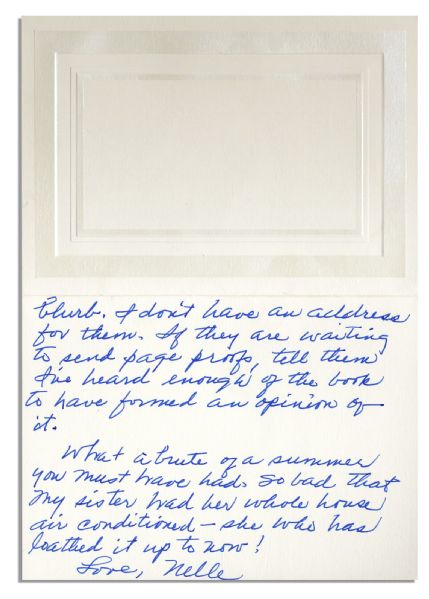 blurb. I don't have an address
for them. If they are waiting
to send page proofs, tell them
I've heard enough of the book
to have formed an opinion of
it.
What a brute of a summer
you must have had. So bad that
my sister had her whole house
air conditioned — she who has
loathed it up to now!
Love, Nelle